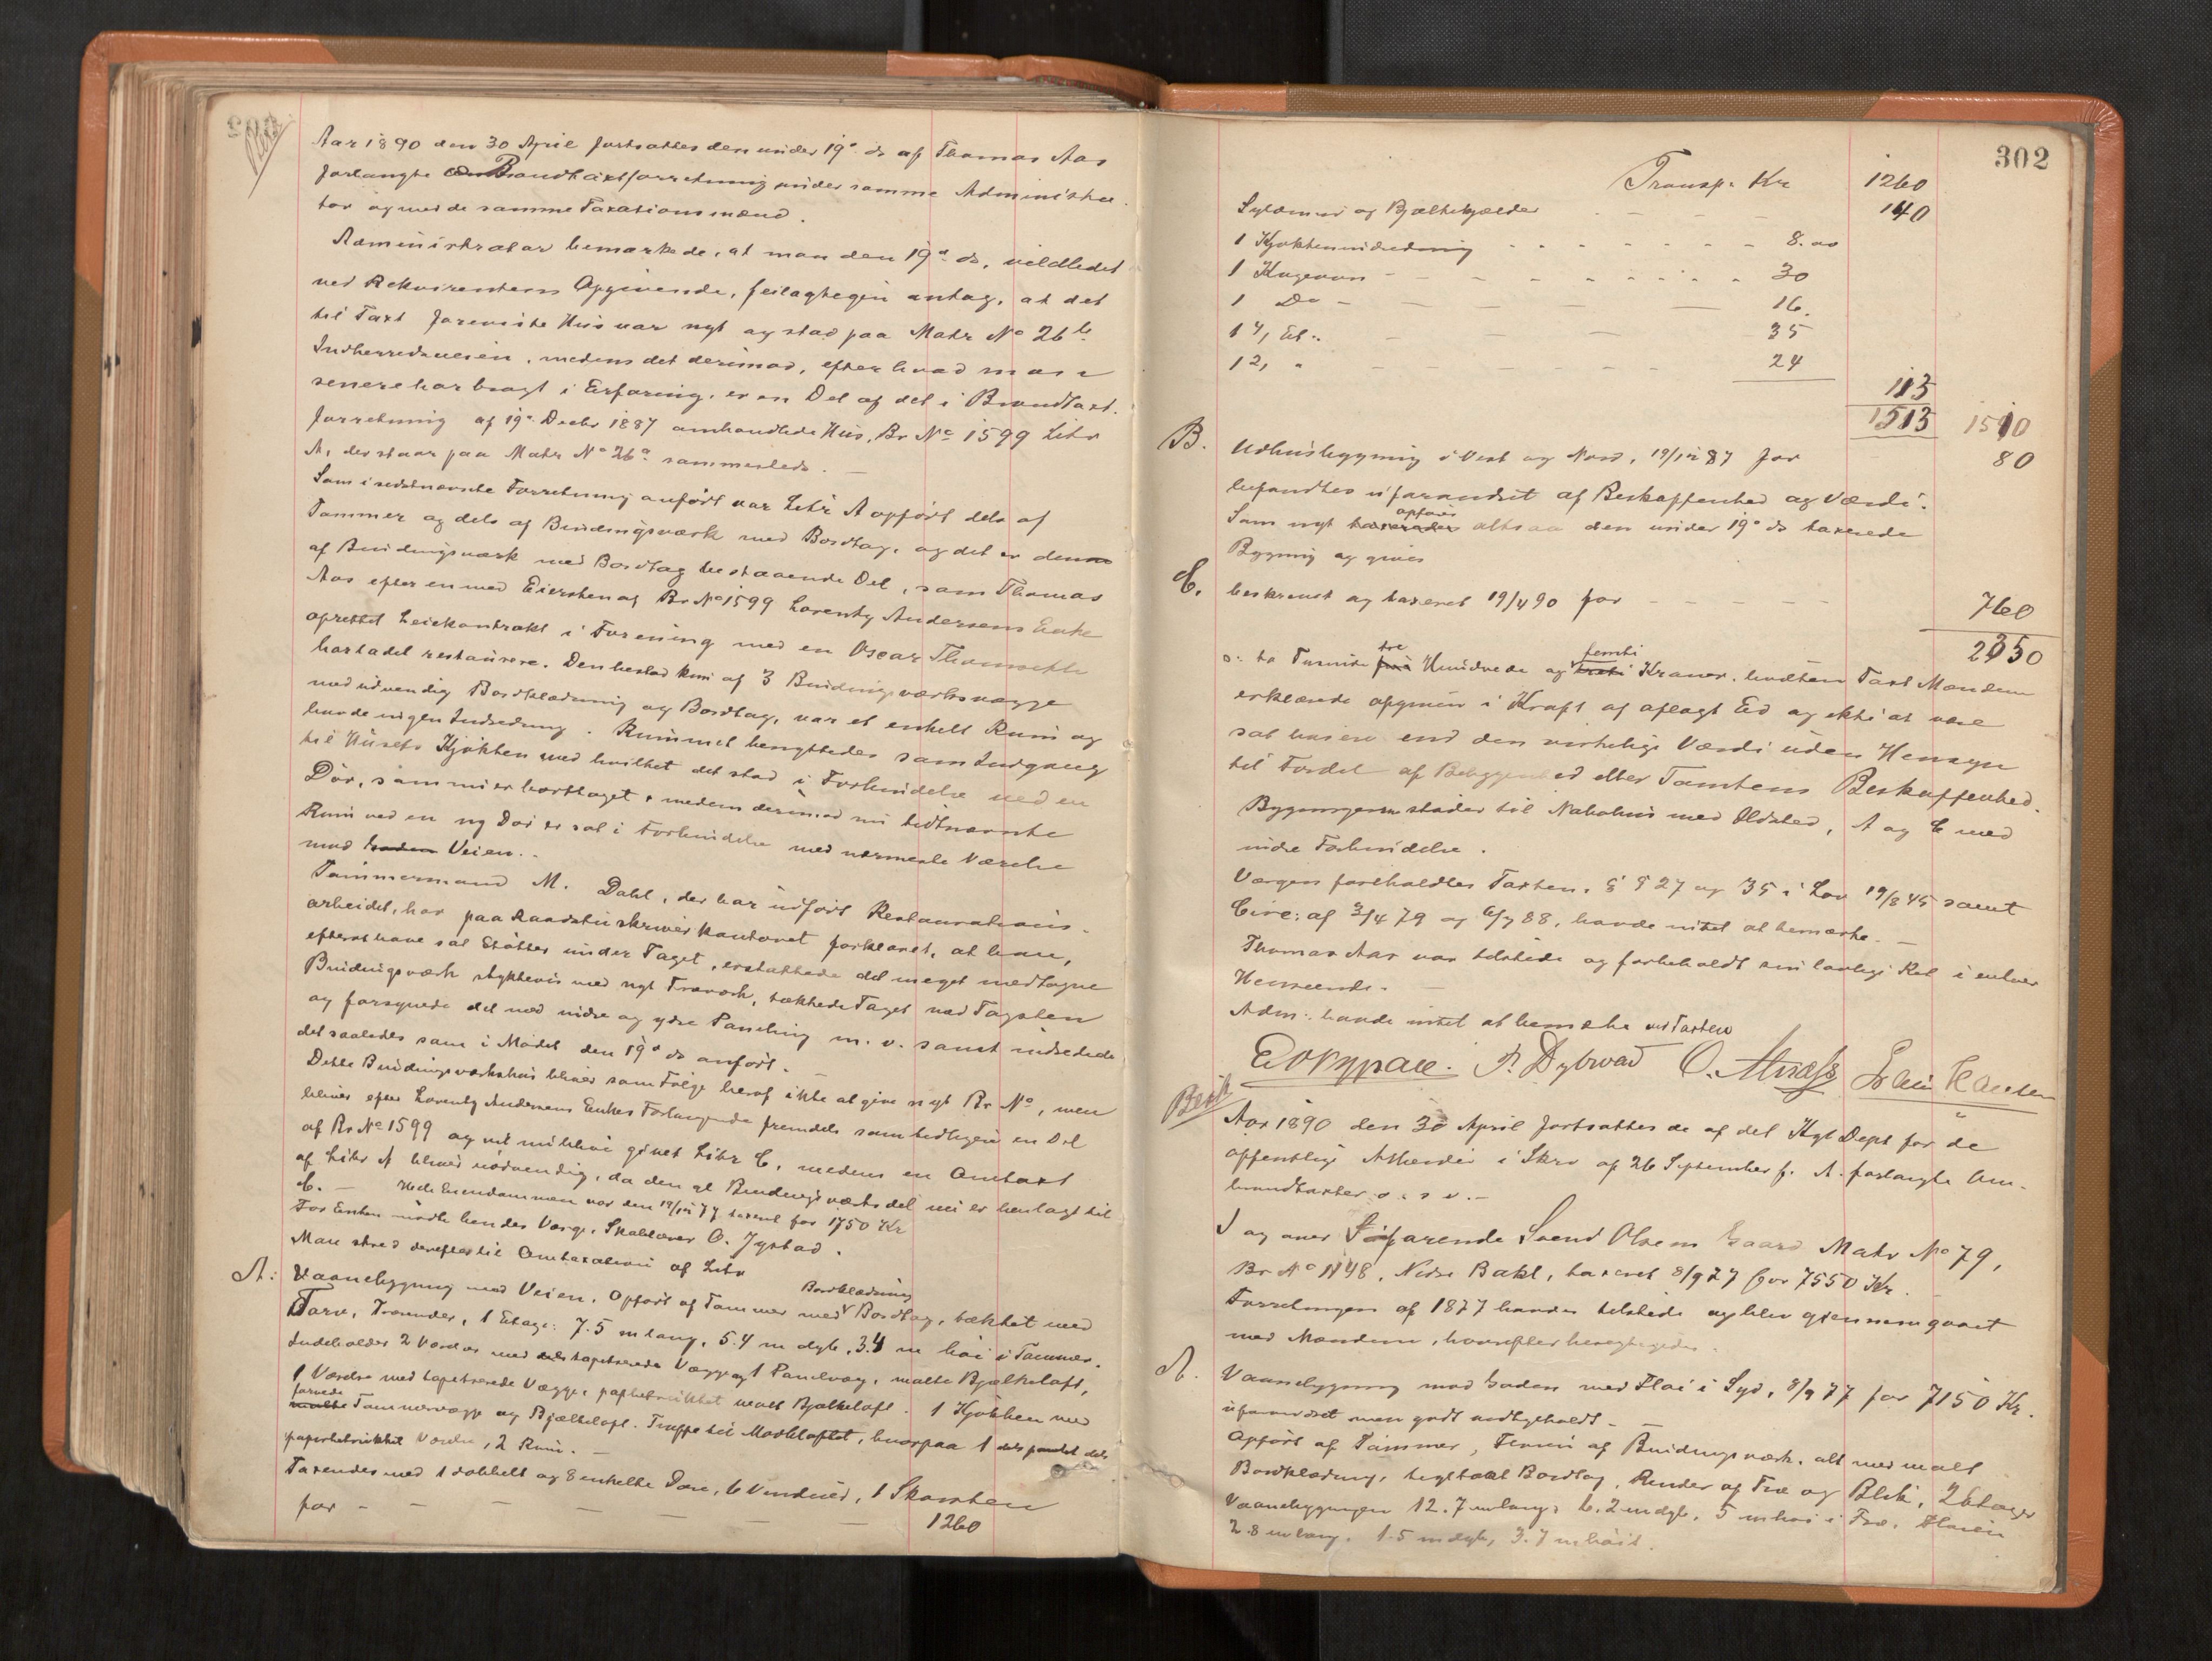 Aar 1890 den 30 April fortsattes den under 19de ds af Thomas Aas
forlangte Brandtaxtforretning under samme Administra-
tor og med de samme Taxationsmænd.
Administrator bemærkede, at man den 19de ds, vildledet
ved Rekvirentens Opgivende, feilagtigen antog, at det
til Taxt foreviste Hus var nyt og stod paa Matr No 26b
Indherredsveien, medens det derimod, efter hvad man
senere har bragt i Erfaring, er en Del af det i Brandtaxt-
forretning af 19de Decbr 1887 omhandlede Hus, Br No 1599 Litr
A, der staar paa Matr No 26a sammesteds. —
Som i sidstnævnte Forretning anført var Litr A opført dels af
Tømmer og dels af Bindingsværk med Bordtag, og det er denne
af Bindingsværk med Bordtag bestaaende Del, som Thomas
Aas efter en med Eiersken af Br No 1599 Lorentz Andersens Enke
oprettet Leiekontrakt i Forening med en Oscar
har ladet restaurere. Den bestod kun af 3 Bindingsværksvægge
med udvendig Bordklædning og Bordtag, var et enkelt Rum og
havde ingen Indredning. Rummet benyttedes som Indgang
til Husets Kjøkken med hvilket det stod i Forbindelse ved en
Dør, som nu er borttaget, medens derimod nu sidstnævnte
Rum ved en ny Dør er sat i Forbindelse med nærmeste Værelse
mod Gaden Veien.
Tømmermand M. Dahl, der har udført Restaurations-
arbeidet, har paa Raadstuskriverkontoret forklaret, at han,
efterat have sat Støtter under Taget, erstattede det meget medtagne
Bindingsværk stykkevis med nyt Træværk, tækkede Taget med Tagsten
og forsynede det med indre og ydre Paneling m. v. samt indredede
det saaledes som i Mødet den 19de ds anført.
Dette Bindingsværkshus bliver som Følge heraf ikke at give nyt Br No, men
bliver efter Lorentz Andersens Enkes Forlangende fremdeles som tidligere en Del
af Br No 1599 og vil blive givet Litr C, medens en Omtaxt
af Litr A bliver nødvendig, da den gl Bindingsværksdel nu er henlagt til
C. — Hele Eiendommen var den 19/12 77 taxeret for 1750 Kr
For Enken mødte hendes Værge, Skoelærer O. Jystad.
Man skred derefter til Omtaxation af Litr
A: Vaanebygning mod Veien. Opført af Tømmer med Bordklædning Bordtag, tækket med
Torv, Trærender, 1 Etage: 7.5 m lang, 5.4 m dyb, 3.4 m høi i Tømmer.
Indeholder 2 Værelser med tapetserede Vægge og 1 Panelvæg, malte Bjælkeloft,
1 Værelse med tapetserede Vægge, papbetrukket malt Bjælkeloft. 1 Kjøkken med
malte farvede Tømmervægge og Bjælkeloft. Trappe til Mørkloftet, hvorpaa 1 dels panelet dels
papirbetrukket Værelse, 2 Rum. —
Taxeredes med 1 dobbelt og 8 enkelte Døre, 6 Vinduer, 1 Skorsten
for — — — — — — 1260
302
Transp. Kr 1260
Sylæmur og Bjælkekjælder 140
1 Kjøkkenindredning 8.00
1 Kogeovn 30
1 Do 16.
1 4, Et: 35
1 2, " 24
113
1513 1510
B. Udhusbygning i Vest og Nord, 19/12 87 for 80
befandtes uforandret af Beskaffenhed og Værdi.
Som nyt taxeredes opføres altsaa den under 19de ds taxerede
Bygning og gives
C. beskrevet og taxeret 19/4 90 for 760
2350
o: to Tusinde tre Hundrede og femti Kroner, hvilken Taxt Mændene
erklærede opgiven i Kraft af aflagt Ed og ikke at være
sat høiere end den virkelige Værdi uden Hensyn
til Fordel af Beliggenhed eller Tomtens Beskaffenhed.
Bygningerne støder til Nabohus med Ildsted, A og C med
indre Forbindelse.
Værgen foreholdtes Taxten, § § 27 og 35 i Lov 19/8 45 samt
Circ: af 3/4 79 og 6/7 88, havde intet at bemærke. —
Thomas Aas var tilstede og forbeholdt sin lovlige Ret i enhver
Henseende. —
Adm: havde intet at bemærke ved Taxten
P. Dybwad O. Alnæss
Besk
Aar 1890 den 30 April fortsattes de af det Kgl Dept for de
offentlige Arbeider i Skrv af 26 September f. A. forlangte Om-
brandtaxter o. s. v. —
I og over Søfarende Svend Olsens Gaard Matr No 79,
Br No 1148, Nedre Bakl, taxeret 8/9 77 for 7550 Kr.
Forretningen af 1877 havdes tilstede og blev gjennemgaaet
med Mændene, hvorefter besigtigedes.
A. Vaanebygning mod Gaden med Fløi i Syd, 8/9 77 for 7150 Kr.
uforandret men godt vedligeholdt. —
Opført af Tømmer, Fløien af Bindingsværk, alt med malt
Bordklædning, teglhængt Bordtag, Render af Træ og Blik, 2 Etager
Vaanebygningen 12.7 m lang, 6.2 m dyb, 5 m høi i Træ. Fløien
2.8 m lang, 1.5 m dyb, 3.7 m høit.